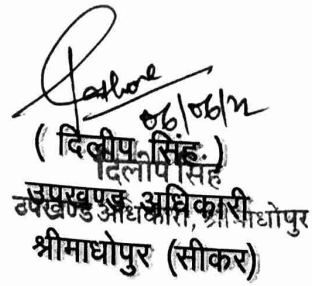 06/06/22
( दिलीप सिंह )
दिलीप सिंह
उपखण्ड अधिकारी
उपखण्ड अधिकारी, श्रीमाधोपुर
श्रीमाधोपुर (सीकर)